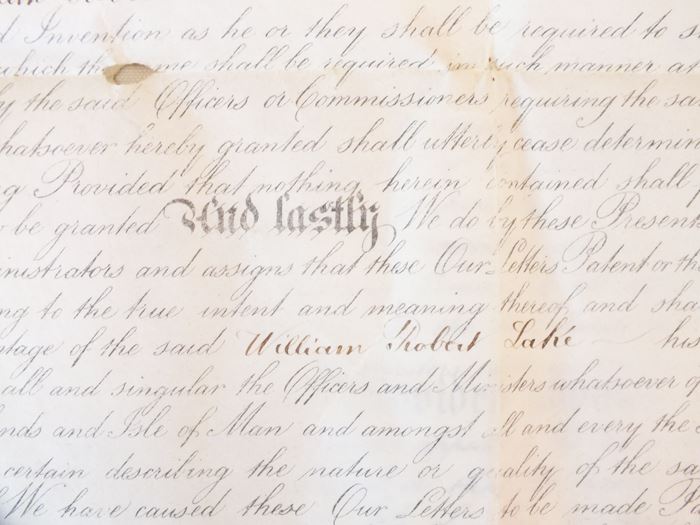 d Invention as he or they shall be required to s
which the me shall be required in such manner as
by the said Officers or Commissioners requiring the sa
hatsoever hereby granted shall utterly cease determin
g Provided that nothing herein contained shall
be granted And lastly We do by these Presents
inistrators and assigns that these Our Letters Patent or th
ng to the true intent and meaning thereof and sha
ntage of the said William Robert Lake his
all and singular the Officers and Ministers whatsoever
nds and Isle of Man and amongst all and every the
certain describing the nature or quality of the sa
We have caused these Our Letters to be made